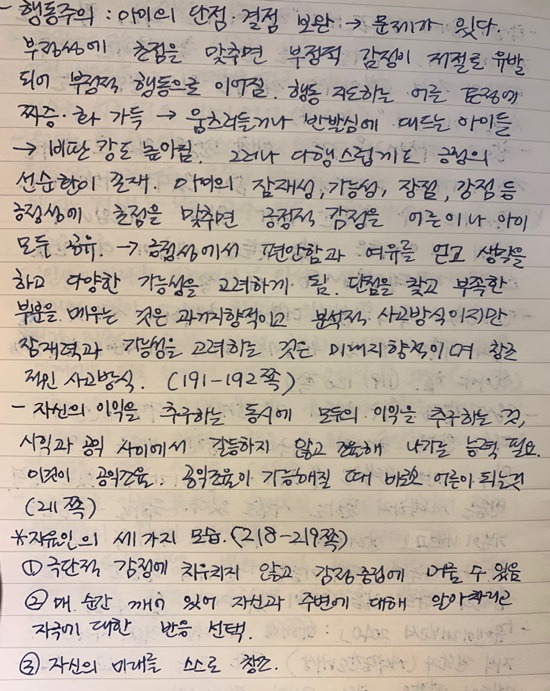 - 행동주의 : 아이의 단점·결점 보완 → 문제가 있다.
부정성에 초점을 맞추면 부정적 감정이 저절로 유발
되어 부정적 행동으로 이어짐. 행동 지도하는 어른 표정에
짜증·화 가득 → 움츠러들거나 반발심에 대드는 아이들
→ 비판 강도 높아짐. 그러나 다행스럽게도 긍정의
선순환이 존재. 아이의 잠재성, 가능성, 장점, 강점 등
긍정성에 초점을 맞추면 긍정적 감정을 어른이나 아이
모두 공유. → 긍정성에서 편안함과 여유를 얻고 생각을
하고 다양한 가능성을 고려하게 됨. 단점을 찾고 부족한
부분을 메우는 것은 과거지향적이고 분석적 사고방식이지만
잠재력과 가능성을 고려하는 것은 미래지향적이며 창조
적인 사고방식. (191-192쪽)
- 자신의 이익을 추구하는 동시에 모두의 이익을 추구하는 것,
사익과 공익 사이에서 갈등하지 않고 조율해 나가는 능력 필요.
이것이 공익조율. 공익조율이 가능해질 때 비로소 어른이 되는것
(211쪽)
*자유인의 세 가지 모습. (218-219쪽)
① 극단적 감정에 치우치지 않고 감정중립에 머물 수 있음
② 매 순간 깨어 있어 자신과 주변에 대해 알아차리고
자극에 대한 반응 선택.
③ 자신의 미래를 스스로 창조.